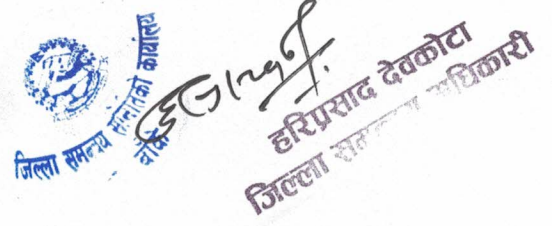 जिल्ला समन्वय समितिको कार्यालय
बाँके
हरिप्रसाद देवकोटा
जिल्ला समन्वय अधिकारी